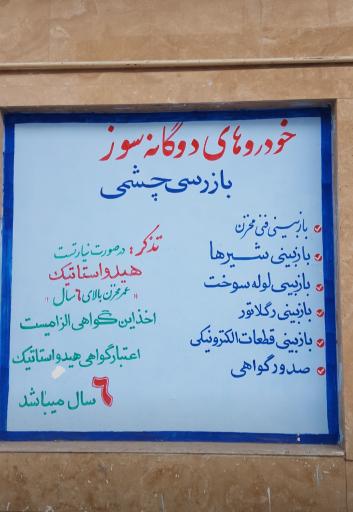 خودروهای دوگانه سوز
بازرسی چشمی
بازبینی فنی مخزن
بازبینی شیرها
بازبینی لوله سوخت
بازبینی رگلاتور
بازبینی قطعات الکترونیکی
صدور گواهی
تذکر: درصورت نیاز تست
هیدواستاتیک
(( عمر مخزن بالای ۶ سال ))
اخذ این گواهی الزامیست
اعتبار گواهی هیدواستاتیک
۶ سال میباشد